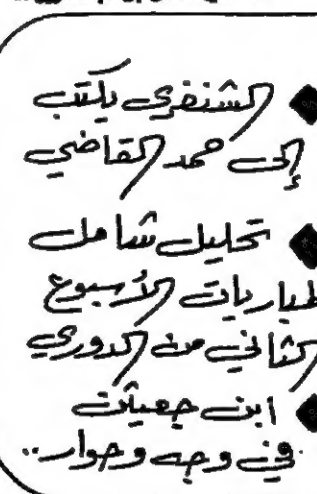 الشنفري يكتب
إلى حمد القاضي
تحليل شامل
لمباريات الأسبوع
الثاني من الدوري
ابن جعيثن
في وجه وحوار..